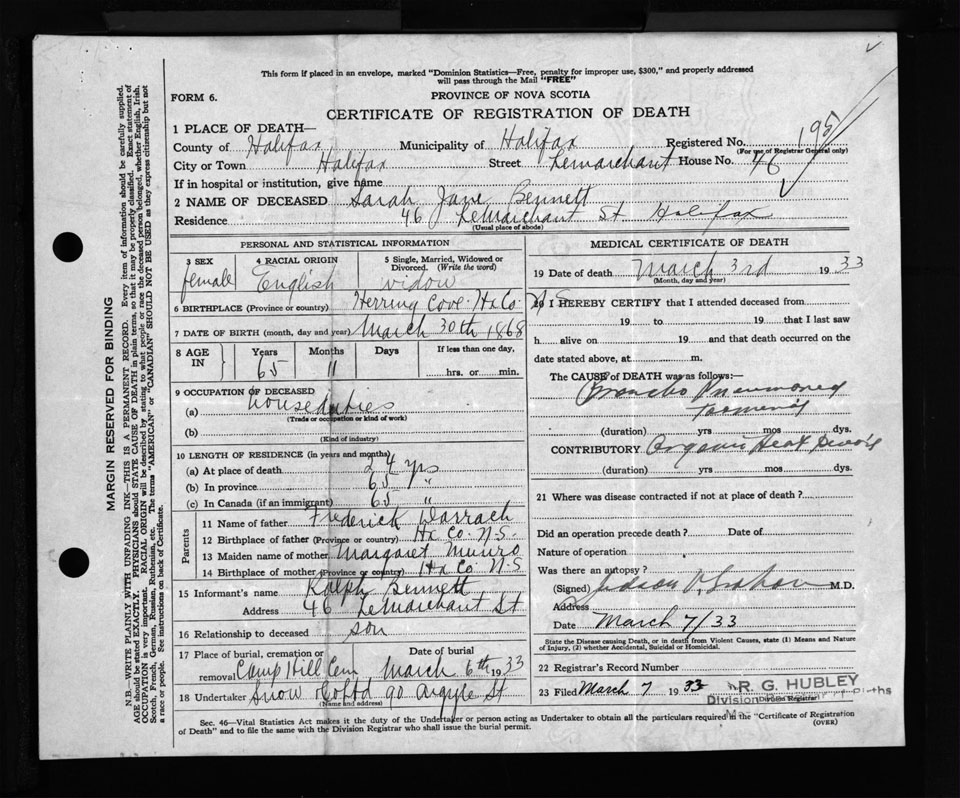 This form if placed in an envelope, marked "Dominion Statistics—Free, penalty for improper use, $300," and properly addressed
will pass through the Mail "FREE"
FORM 6.
PROVINCE OF NOVA SCOTIA
CERTIFICATE OF REGISTRATION OF DEATH
1 PLACE OF DEATH—
County of Halifax Municipality of Halifax Registered No. 195
(For use of Registrar General only)
City or Town Halifax Street Lemarchant House No. 46
If in hospital or institution, give name
2 NAME OF DECEASED Sarah Jane Bennett
Residence 46 LeMarchant St Halifax
(Usual place of abode)
PERSONAL AND STATISTICAL INFORMATION
3 SEX female
4 RACIAL ORIGIN English
5 Single, Married, Widowed or Divorced. (Write the word) widow
6 BIRTHPLACE (Province or country) Herring Cove Hx Co. N.S.
7 DATE OF BIRTH (month, day and year) March 30th 1868
8 AGE IN
Years Months Days If less than one day,
65 11 hrs. or min.
9 OCCUPATION OF DECEASED
(a) house duties
(Trade or occupation or kind of work)
(b)
(Kind of industry)
10 LENGTH OF RESIDENCE (in years and months)
(a) At place of death 24 yrs
(b) In province 65 "
(c) In Canada (if an immigrant) 65 "
Parents
11 Name of father Frederick Darrach
12 Birthplace of father (Province or country) Hx Co. N.S.
13 Maiden name of mother Margaret Munro
14 Birthplace of mother (Province or country) Hx Co N-S
15 Informant's name Ralph Bennett
Address 46 LeMarchant St
16 Relationship to deceased son
17 Place of burial, cremation or Date of burial
removal Camp Hill Cem March 6th 1933
18 Undertaker Snow & Co Ltd 90 Argyle St
(Name and address)
MEDICAL CERTIFICATE OF DEATH
19 Date of death March 3rd 1933
(Month, day and year)
20 I HEREBY CERTIFY that I attended deceased from
19 to 19 that I last saw
h alive on 19 and that death occurred on the
date stated above, at m.
The CAUSE of DEATH was as follows:—
Broncho Pneumonia
(duration) yrs mos dys.
CONTRIBUTORY Organic Heart
(duration) yrs mos dys.
21 Where was disease contracted if not at place of death?
Did an operation precede death? Date of
Nature of operation
Was there an autopsy?
(Signed) Judson V. Graham M.D.
Address
Date March 7/33
State the Disease causing Death, or in death from Violent Causes, state (1) Means and Nature
of Injury, (2) whether Accidental, Suicidal or Homicidal.
22 Registrar's Record Number
23 Filed March 7 1933 R. G. HUBLEY
Division Registrar
Sec. 46—Vital Statistics Act makes it the duty of the Undertaker or person acting as Undertaker to obtain all the particulars required in the "Certificate of Registration
of Death" and to file the same with the Division Registrar who shall issue the burial permit.
(OVER)
MARGIN RESERVED FOR BINDING
N.B.—WRITE PLAINLY WITH UNFADING INK—THIS IS A PERMANENT RECORD. Every item of information should be carefully supplied.
AGE should be stated EXACTLY. PHYSICIANS should STATE CAUSE OF DEATH in plain terms, so that it may be properly classified. Exact statement of
OCCUPATION is very important. RACIAL ORIGIN will be described by stating to what people or race the deceased person belonged, whether English, Irish,
Scotch, French, German, Russian, Ruthenian, etc. The terms "AMERICAN" or "CANADIAN" SHOULD NOT BE USED as they express citizenship but not
a race or people. See instructions on back of Certificate.